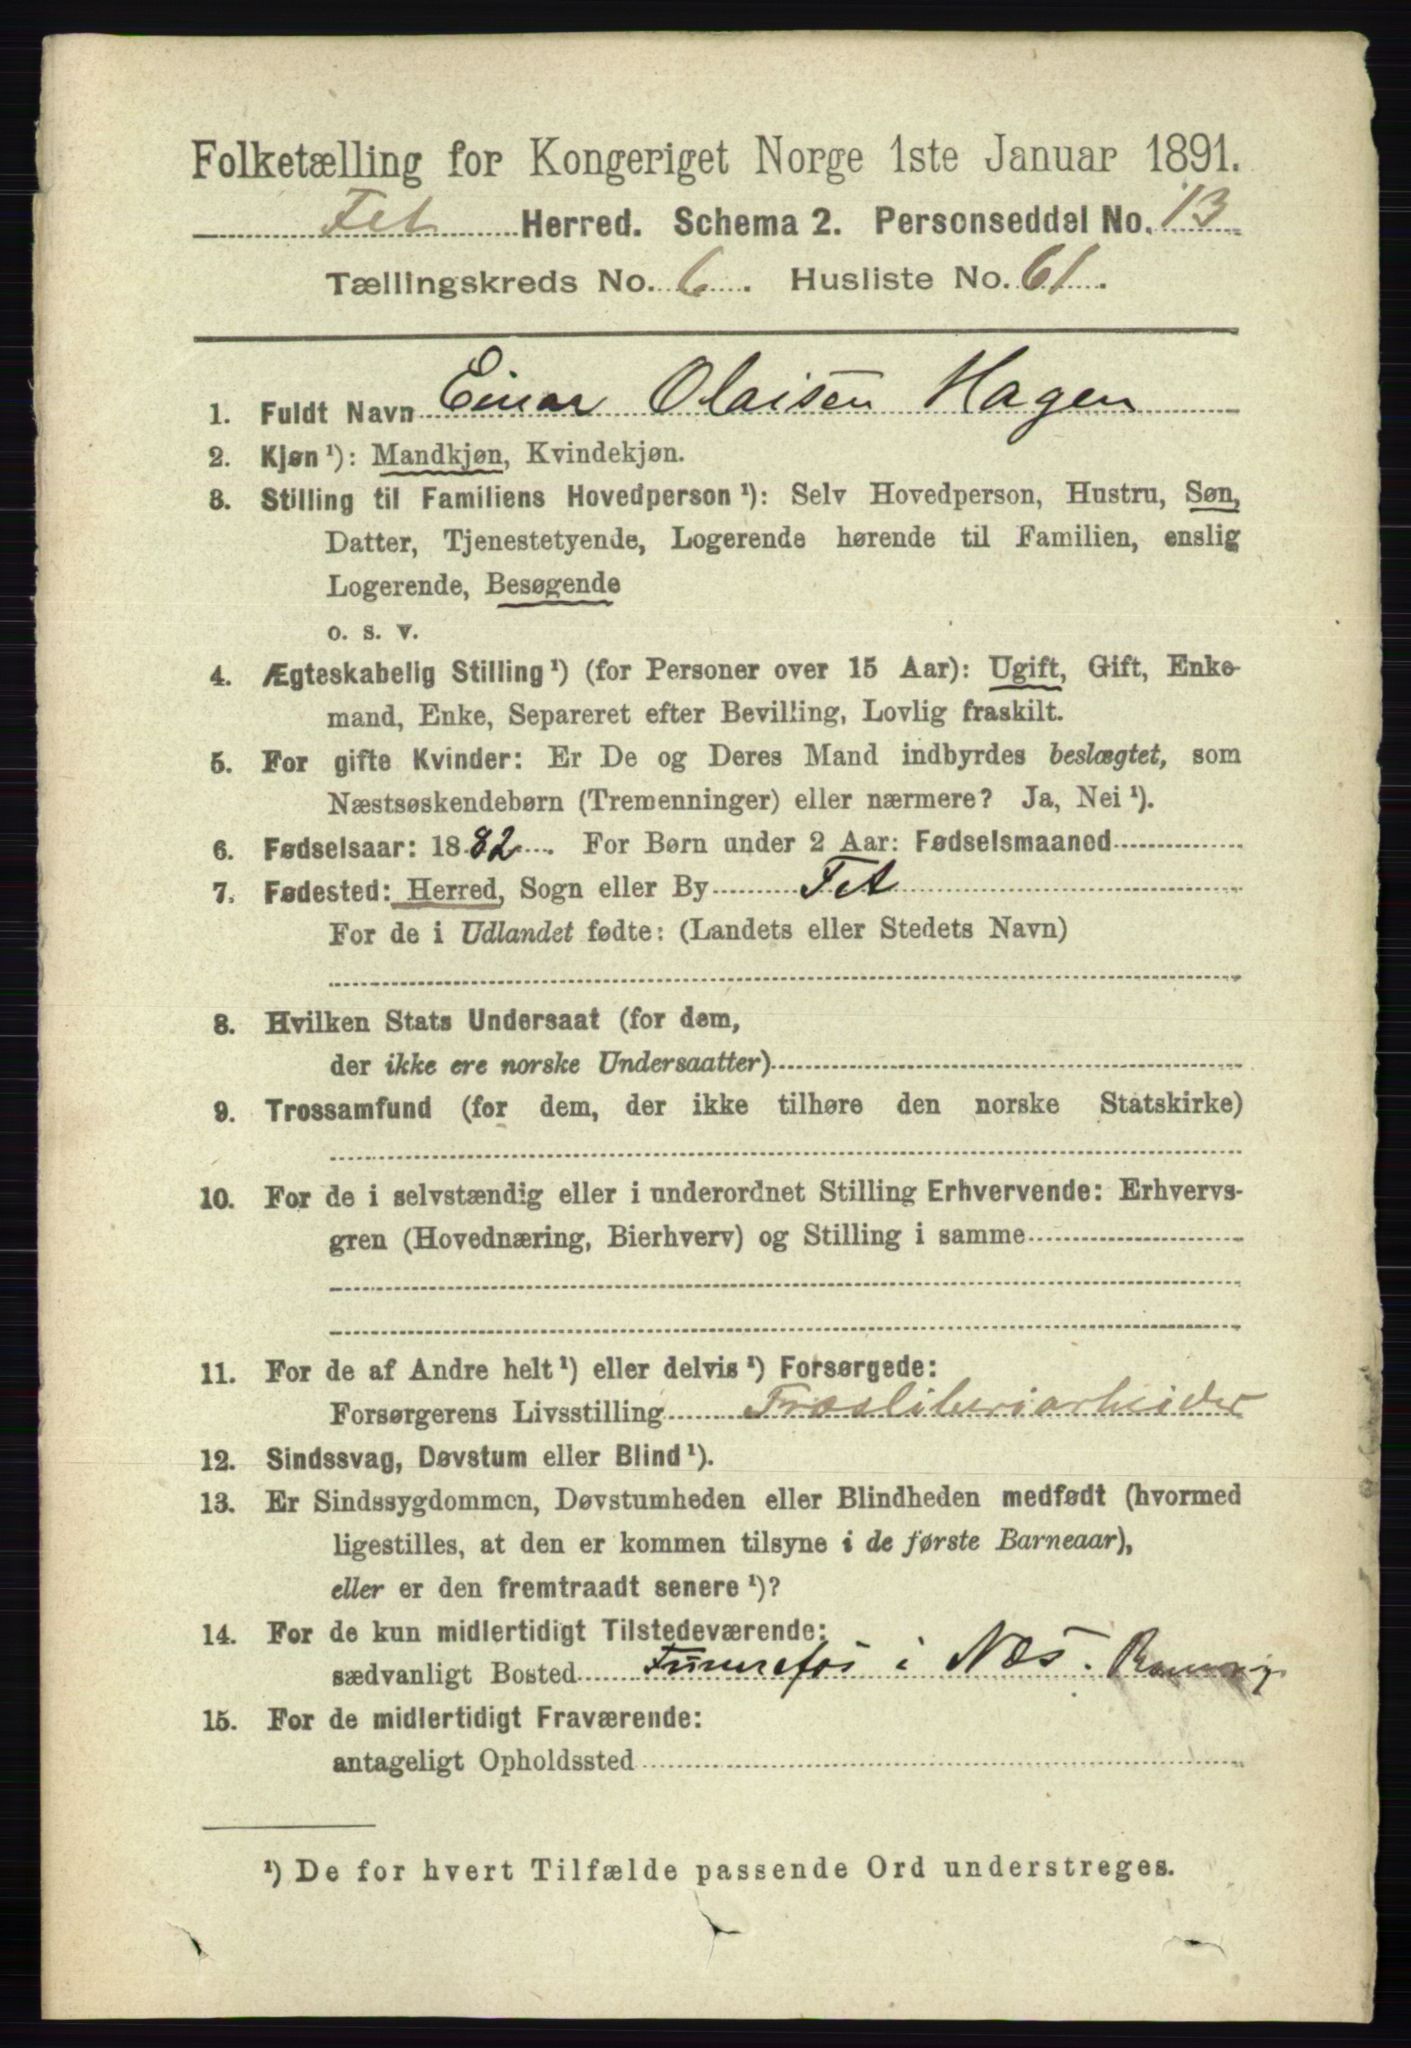 Folketælling for Kongeriget Norge 1ste Januar 1891.
Fet Herred. Schema 2. Personseddel No. 13
Tællingskreds No. 6. Husliste No. 61.
1. Fuldt Navn Einar Olaisen Hagen
2. Kjøn ¹): Mandkjøn, Kvindekjøn.
3. Stilling til Familiens Hovedperson ¹): Selv Hovedperson, Hustru, Søn,
Datter, Tjenestetyende, Logerende hørende til Familien, enslig
Logerende, Besøgende
o. s. v.
4. Ægteskabelig Stilling ¹) (for Personer over 15 Aar): Ugift, Gift, Enke-
mand, Enke, Separeret efter Bevilling, Lovlig fraskilt.
5. For gifte Kvinder: Er De og Deres Mand indbyrdes beslægtet, som
Næstsøskendebørn (Tremenninger) eller nærmere? Ja, Nei ¹).
6. Fødselsaar: 1882. For Børn under 2 Aar: Fødselsmaaned
7. Fødested: Herred, Sogn eller By Fet
For de i Udlandet fødte: (Landets eller Stedets Navn)
8. Hvilken Stats Undersaat (for dem,
der ikke ere norske Undersaatter)
9. Trossamfund (for dem, der ikke tilhøre den norske Statskirke)
10. For de i selvstændig eller i underordnet Stilling Erhvervende: Erhvervs-
gren (Hovednæring, Bierhverv) og Stilling i samme
11. For de af Andre helt ¹) eller delvis ¹) Forsørgede:
Forsørgerens Livsstilling Træsliberiarbeider
12. Sindssvag, Døvstum eller Blind ¹).
13. Er Sindssygdommen, Døvstumheden eller Blindheden medfødt (hvormed
ligestilles, at den er kommen tilsyne i de første Barneaar),
eller er den fremtraadt senere ¹)?
14. For de kun midlertidigt Tilstedeværende:
sædvanligt Bosted Funnefos i Næs.
15. For de midlertidigt Fraværende:
antageligt Opholdssted
¹) De for hvert Tilfælde passende Ord understreges.